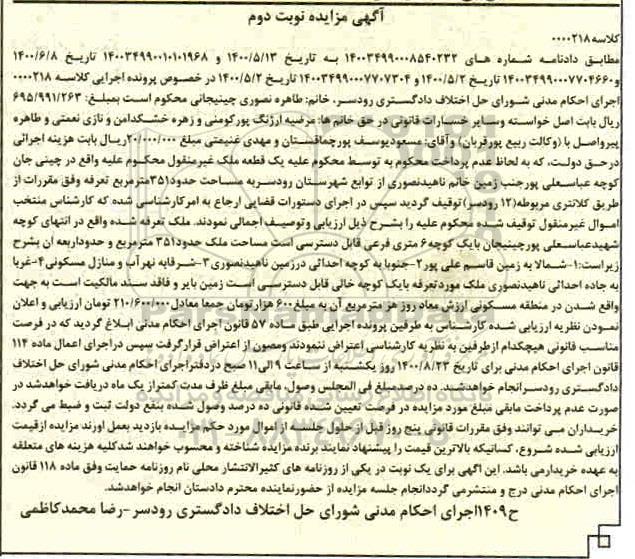 آگهی مزایده نوبت دوم
کلاسه۰۰۰۰۲۱۸
مطابق دادنامه شماره های ۱۴۰۰۳۴۹۹۰۰۰۸۵۴۰۲۳۲ به تاریخ ۱۴۰۰/۵/۱۳ و ۱۴۰۰۳۴۹۹۰۰۰۱۰۱۰۱۹۶۸ تاریخ ۱۴۰۰/۶/۸
و۱۴۰۰۳۴۹۹۰۰۰۷۷۰۴۶۶۰ تاریخ ۱۴۰۰/۵/۲ و ۱۴۰۰۳۴۹۹۰۰۰۷۷۰۷۳۰۴ تاریخ ۱۴۰۰/۵/۲ در خصوص پرونده اجرایی کلاسه ۰۰۰۰۲۱۸
اجرای احکام مدنی شورای حل اختلاف دادگستری رودسر، خانم: طاهره نصوری چینیجانی محکوم است بمبلغ: ۶۹۵/۹۹۱/۲۶۳
ریال بابت اصل خواسته وسایر خسارات قانونی در حق خانم ها: مرضیه ارژنگ پورکومنی و زهره خشکدامن و نازی نعمتی و طاهره
پیرواصل با (وکالت ربیع پورقربان) وآقای: مسعودیوسف پورچماقستان و مهدی غنیمتی مبلغ ۲۰/۰۰۰/۰۰۰ریال بابت هزینه اجرائی
درحق دولت، که به لحاظ عدم پرداخت محکوم به توسط محکوم علیه یک قطعه ملک غیرمنقول محکوم علیه واقع در چینی جان
کوچه عباسعلی پورجنب زمین خانم ناهیدنصوری از توابع شهرستان رودسربه مساحت حدود۳۵۱مترمربع تعرفه وفق مقررات از
طریق کلانتری مربوطه(۱۲ رودسر)توقیف گردید سپس در اجرای دستورات قضایی ارجاع به امرکارشناسی شده که کارشناس منتخب
اموال غیرمنقول توقیف شده محکوم علیه را بشرح ذیل ارزیابی وتوصیف اجمالی نمودند. ملک تعرفه شده واقع در انتهای کوچه
شهیدعباسعلی پورچینیجان بایک کوچه۶ متری فرعی قابل دسترسی است مساحت ملک حدود۳۵۱ مترمربع و حدوداربعه آن بشرح
زیراست:۱-شمالا به زمین قاسم علی پور۲-جنوبا به کوچه احداثی درزمین ناهیدنصوری۳-شرقابه نهرآب و منازل مسکونی۴-غربا
به جاده احداثی ناهیدنصوری ملک موردتعرفه بایک کوچه خاکی قابل دسترسی است زمین بایر و فاقد سند مالکیت است به جهت
واقع شدن در منطقه مسکونی ارزش معاد روز هر مترمربع آن به مبلغ۶۰۰ هزارتومان جمعا معادل۲۱۰/۶۰۰/۰۰۰ تومان ارزیابی و اعلان
نمودن نظریه ارزیابی شده کارشناس به طرفین پرونده اجرایی طبق ماده ۵۷ قانون اجرای احکام مدنی ابلاغ گردید که در فرصت
مناسب قانونی هیچکدام ازطرفین به نظریه کارشناسی اعتراض ننمودند ومصون از اعتراض قرارگرفت سپس دراجرای اعمال ماده ۱۱۴
قانون اجرای احکام مدنی برای تاریخ ۱۴۰۰/۸/۲۳ روز یکشنبه از ساعت ۹ الی۱۱ صبح دردفتراجرای احکام مدنی شورای حل اختلاف
دادگستری رودسرانجام خواهدشد. ده درصدمبلغ فی المجلس وصول، مابقی مبلغ ظرف مدت کمتراز یک ماه دریافت خواهدشد در
صورت عدم پرداخت مابقی مبلغ مورد مزایده در فرصت تعیین شده قانونی ده درصد وصول شده بنفع دولت ثبت و ضبط می گردد.
خریداران می توانند وفق مقررات قانونی پنج روز قبل از حلول جلسه از اموال مورد حکم مزایده بازدید بعمل آورند مزایده ازقیمت
ارزیابی شده شروع، کسانیکه بالاترین قیمت را پیشنهاد نمایند برنده مزایده شناخته و محسوب خواهند شدکلیه هزینه های متعلقه
به عهده خریدارمی باشد. این اگهی برای یک نوبت در یکی از روزنامه های کثیرالانتشار محلی نام روزنامه حمایت وفق ماده ۱۱۸ قانون
اجرای احکام مدنی درج و منتشرمی گرددانجام جلسه مزایده از حضورنماینده محترم دادستان انجام خواهدشد.
ح۱۴۰۹اجرای احکام مدنی شورای حل اختلاف دادگستری رودسر-رضا محمدکاظمی